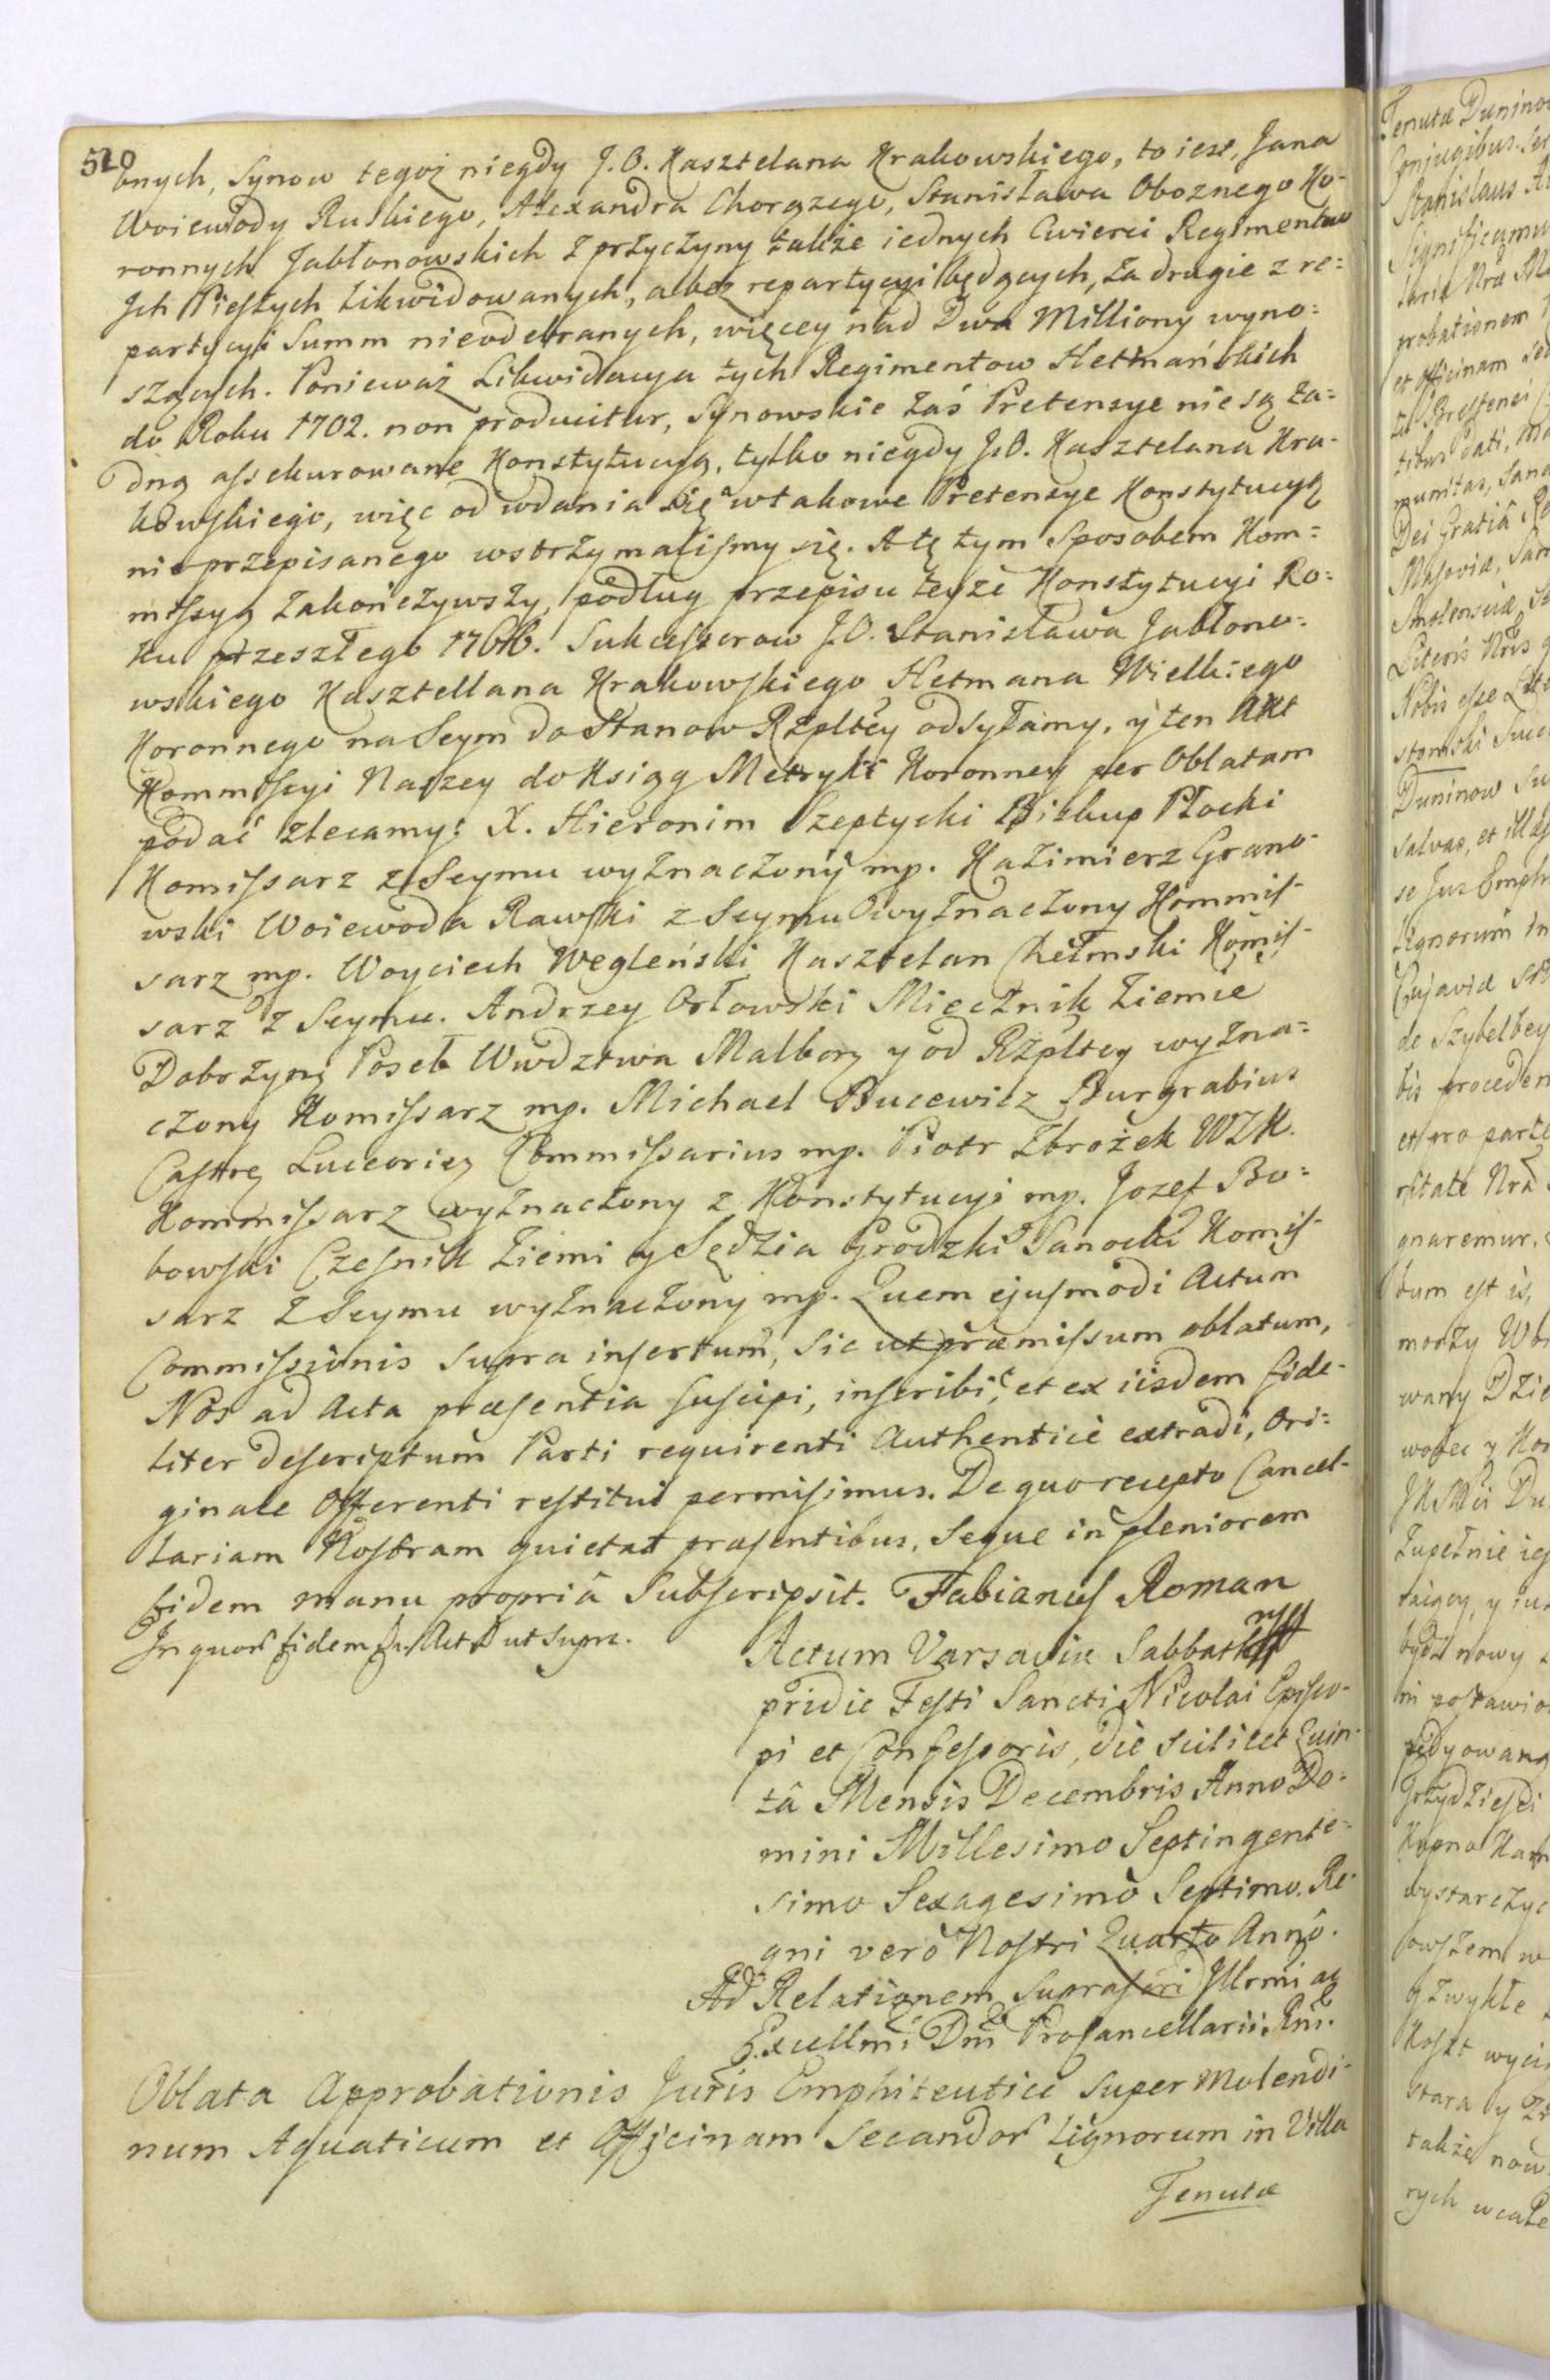 520
bnych, Synow tegoż niegdy J.O. Kasztelana Krakowskiego, to iest, Jana
Woiewody Ruskiego, Alexandra Chorązego, Stanisława Oboznego Ko-
ronnych Jabłonowskich z przyczyny także iednych Cwierci Regimentow
Jch Pieszych likwidowanych, a bez repartycyi będących, za drugie z re=
partycyi Summ nieodebranych, więcey nad Dwa Milliony wyno=
szących. Ponieważ Likwidacya tych Regimentow Hetmańskich
do Roku 1702. non producitur, Synowskie zaś Pretensye nie są ża=
dną assekurowane Konstytucyą, tylko niegdy J.O. Kasztelana Kra-
kowskiego, więc od wdania się w takowe Pretensye Konstytucyą
nie przepisanego wstrzymalismy się. A tę tym Sposobem Kom=
missyą zakończywszy, podług przepisu teyże Konstytucyi Ro=
ku przeszłego 1766. Sukcessorow J.O. Stanisława Jabłono=
wskiego Kasztellana Krakowskiego Hetmana Wielkiego
Koronnego na Seym do Stanow Rzpltey odsyłamy, y ten Akt
Kommissyi Naszey do Ksiąg Metryki Koronney per Oblatam
podać zlecamy: X. Hieronim Szeptycki Biskup Płocki
Komissarz z Seymu wyznaczony mp. Kazimierz Grano-
wski Woiewoda Rawski z Seymu wyznaczony Kommis-
sarz mp. Woyciech Węgleński Kasztelan Chełmski Komis-
sarz z Seymu. Andrzey Orłowski Miecznik Ziemie
Dobrzyn; Poseł Wwdztwa Malbor; y od Rzpltey wyzna=
czony Komissarz mp. Michael Bucewicz Burgrabius
Castre; Luceorien; Commissarius mp. Piotr Zbrożek WZK.
Kommissarz wyznaczony z Konstytucyi mp. Jozef Bo=
bowski Czesnik Ziemi y Sędzia Grodzki Sanocki Komis-
sarz z Seymu wyznaczony mp. Quem ejusmodi Actum
Commissionis supra insertum, sic ut præmissum oblatum,
Nos ad Acta præsentia suscipi, inscribi, et ex iisdem fide-
liter descriptum Parti requirenti Authentice extradi, Ori=
ginale Offerenti restitui permisimus. De quo recepto Cancel-
lariam Nostram quietat præsentibus, Seque in pleniorem
fidem manu propriâ Subscripsit. Fabianus Roman
In quor fidem Dat ut supra.
Actum Varsaviæ Sabbatho
pridie Festi Sancti Nicolai Episco-
pi et Confessoris, die scilicet Quin-
tâ Mensis Decembris Anno Do=
mini Millesimo Septingente=
simo Sexagesimo Septimo. Re-
gni verò Nostri Quarto Annô.
Ad Relationem suprascri Illrmi ac
Excellmi Dni Procancellarii Rni.
Oblata Approbationis Juris Emphiteutici super Molendi-
num Aquaticum et Officinam secandor lignorum in Villa
Tenutæ
Tenutæ Duninow
Conjugibus. Ser
Stanislaus
Significamus
probationem
et officinam
munitas, sana
Dei Gratiâ Re
Masoviæ, Sam
Smolensciæ
Literis Nris
Nobis esse
Duninow Su
salvas, et illæs
se Jus Emph
lignorum in
Cujaviæ
de Szybelbey
bis proceden
et pro parte
gnaremur.
tum est is,
wany
Zupełnie
bydź nowy
ni postawio
Kupno
wystarczyc
owszem w
Koszt
stara y
także now
rych wcale